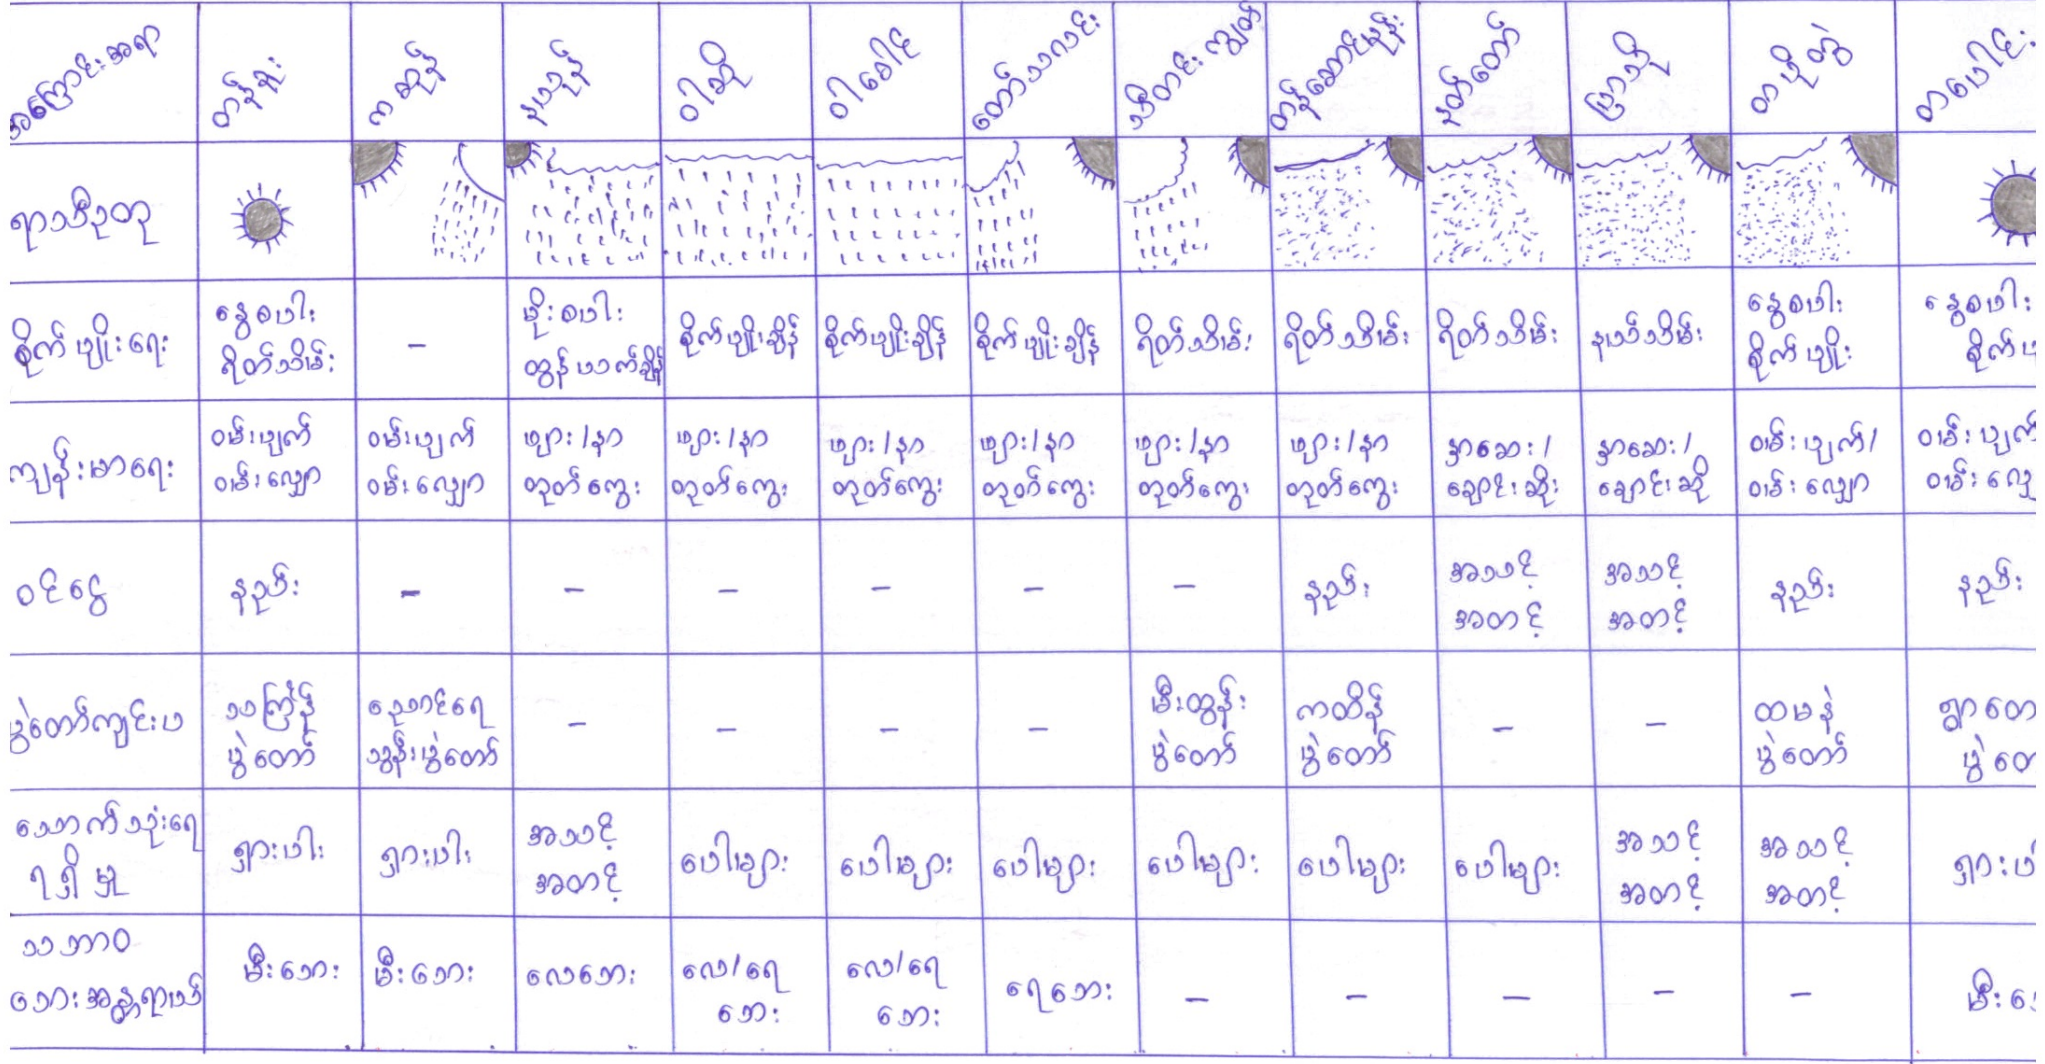 အကြောင်းအရာ တန်ခူး ကဆုန် နယုန် ဝါဆို ဝါခေါင် တော်သလင်း သီတင်းကျွတ် တန်ဆောင်မုန်း နတ်တော် ပြာသို တပို့တွဲ တပေါင်း
ရာသီဥတု
စိုက်ပျိုးရေး နွေစပါး ရိတ်သိမ်း - မိုးစပါး ထွန်ယက်ချိန် စိုက်ပျိုးချိန် စိုက်ပျိုးချိန် စိုက်ပျိုးချိန် ရိတ်သိမ်း ရိတ်သိမ်း ရိတ်သိမ်း နယ်သိမ်း နွေစပါး စိုက်ပျိုး နွေစပါး စိုက်ပ
ကျန်းမာရေး ဝမ်းပျက် ဝမ်းလျှော ဝမ်းပျက် ဝမ်းလျှော ဖျား/နာ တုတ်ကွေး ဖျား/နာ တုတ်ကွေး ဖျား/နာ တုတ်ကွေး ဖျား/နာ တုတ်ကွေး ဖျား/နာ တုတ်ကွေး ဖျား/နာ တုတ်ကွေး နှာစေး/ ချောင်းဆိုး နှာစေး/ ချောင်းဆို ဝမ်းပျက်/ ဝမ်းလျှော ဝမ်းပျက် ဝမ်းလျှေ
ဝင်ငွေ နည်း - - - - - - နည်း အသင့် အတင့် အသင့် အတင့် နည်း နည်း
ပွဲတော်ကျင်းပ သင်္ကြန် ပွဲတော် ညောင်ရေ သွန်းပွဲတော် - - - - မီးထွန်း ပွဲတော် ကထိန် ပွဲတော် - - ထမနဲ ပွဲတော် ရွာတော ပွဲတေ
သောက်သုံးရေ ရရှိမှု ရှားပါး ရှားပါး အသင့် အတင့် ပေါများ ပေါများ ပေါများ ပေါများ ပေါများ ပေါများ အသင့် အတင့် အသင့် အတင့် ရှားပါ
သဘာဝ ဘေးအန္တရာယ် မီးဘေး မီးဘေး လေဘေး လေ/ရေ ဘေး လေ/ရေ ဘေး ရေဘေး - - - - - မီးဘေ